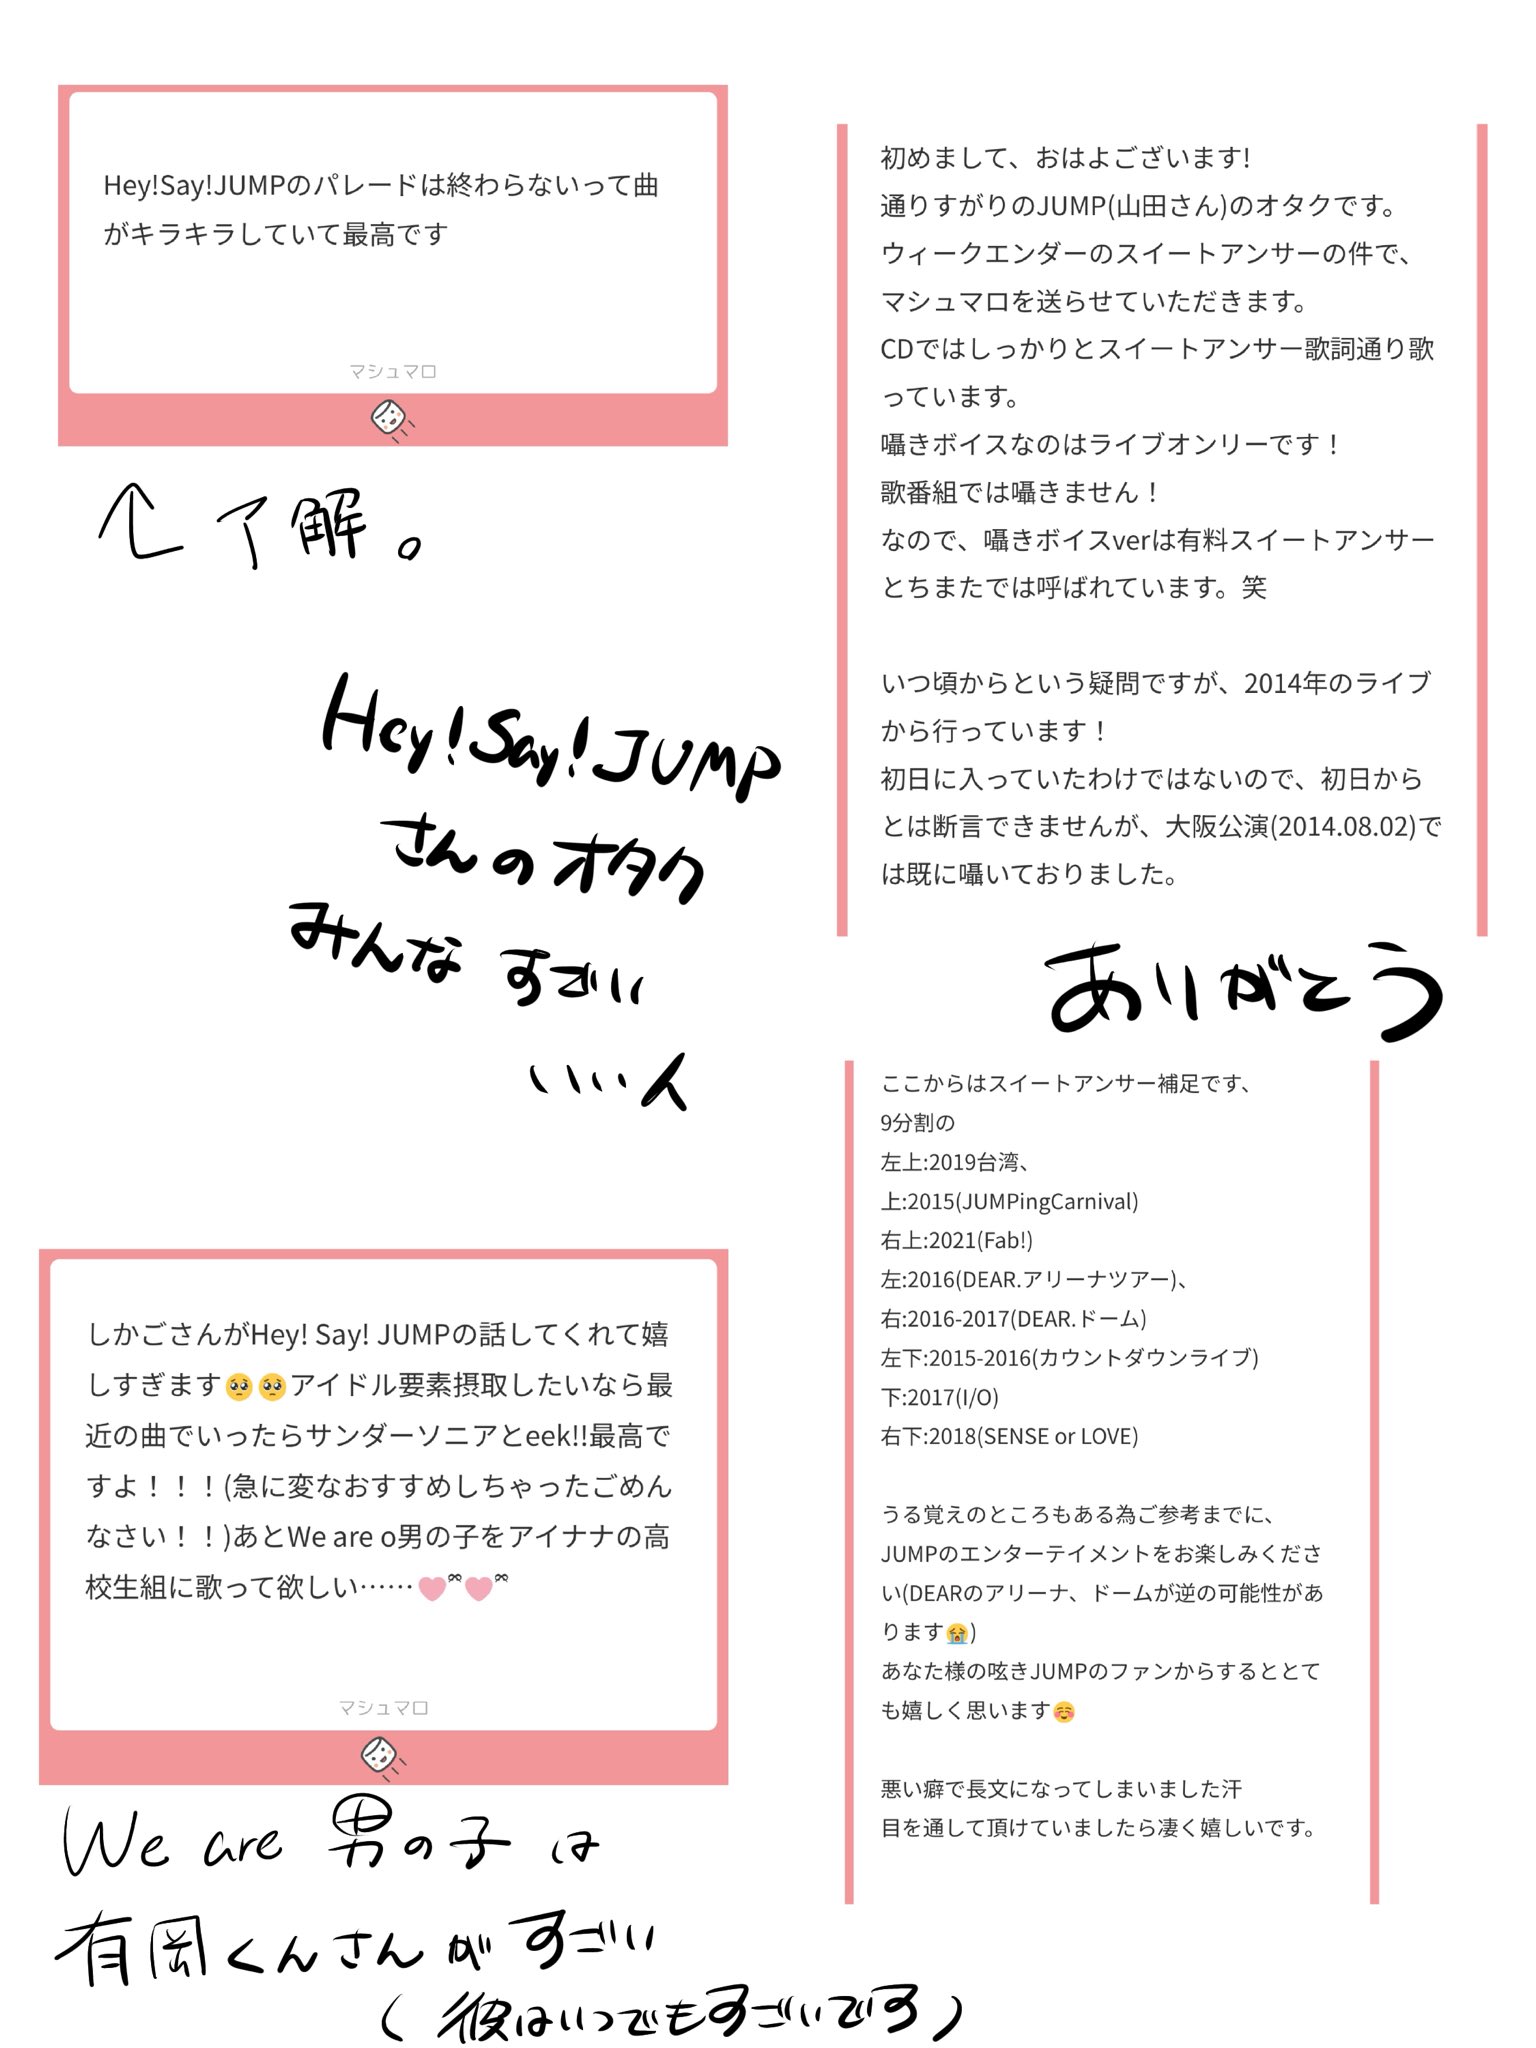 Hey!Say!JUMPのパレードは終わらないって曲
がキラキラしていて最高です
マシュマロ
↑了解。
Hey!Say!JUMP
さんのオタク
みんなすごい
いい人
しかごさんがHey! Say! JUMPの話してくれて嬉
しすぎます🥺🥺アイドル要素摂取したいなら最
近の曲でいったらサンダーソニアとeek!!最高で
すよ！！！(急に変なおすすめしちゃったごめん
なさい！！)あとWe are o男の子をアイナナの高
校生組に歌って欲しい……🩷ྀི🩷ྀི
マシュマロ
We are 男の子は
有岡くんさんがすごい
(彼はいつでもすごいです)
初めまして、おはよございます!
通りすがりのJUMP(山田さん)のオタクです。
ウィークエンダーのスイートアンサーの件で、
マシュマロを送らせていただきます。
CDではしっかりとスイートアンサー歌詞通り歌
っています。
囁きボイスなのはライブオンリーです！
歌番組では囁きません！
なので、囁きボイスverは有料スイートアンサー
とちまたでは呼ばれています。笑
いつ頃からという疑問ですが、2014年のライブ
から行っています！
初日に入っていたわけではないので、初日から
とは断言できませんが、大阪公演(2014.08.02)で
は既に囁いておりました。
ありがとう
ここからはスイートアンサー補足です、
9分割の
左上:2019台湾、
上:2015(JUMPingCarnival)
右上:2021(Fab!)
左:2016(DEAR.アリーナツアー)、
右:2016-2017(DEAR.ドーム)
左下:2015-2016(カウントダウンライブ)
下:2017(I/O)
右下:2018(SENSE or LOVE)
うる覚えのところもある為ご参考までに、
JUMPのエンターテイメントをお楽しみくださ
い(DEARのアリーナ、ドームが逆の可能性があ
ります😭)
あなた様の呟きJUMPのファンからするととて
も嬉しく思います☺️
悪い癖で長文になってしまいました汗
目を通して頂けていましたら凄く嬉しいです。